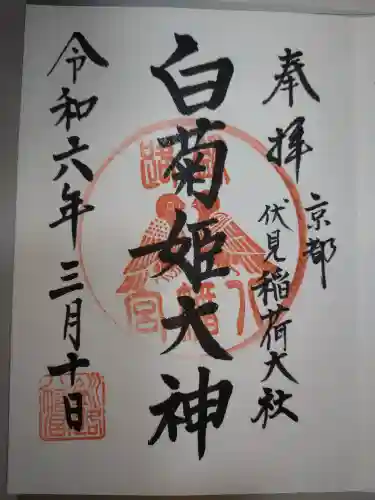 奉拝
京都
伏見稲荷大社
白菊姫大神
令和六年三月十日